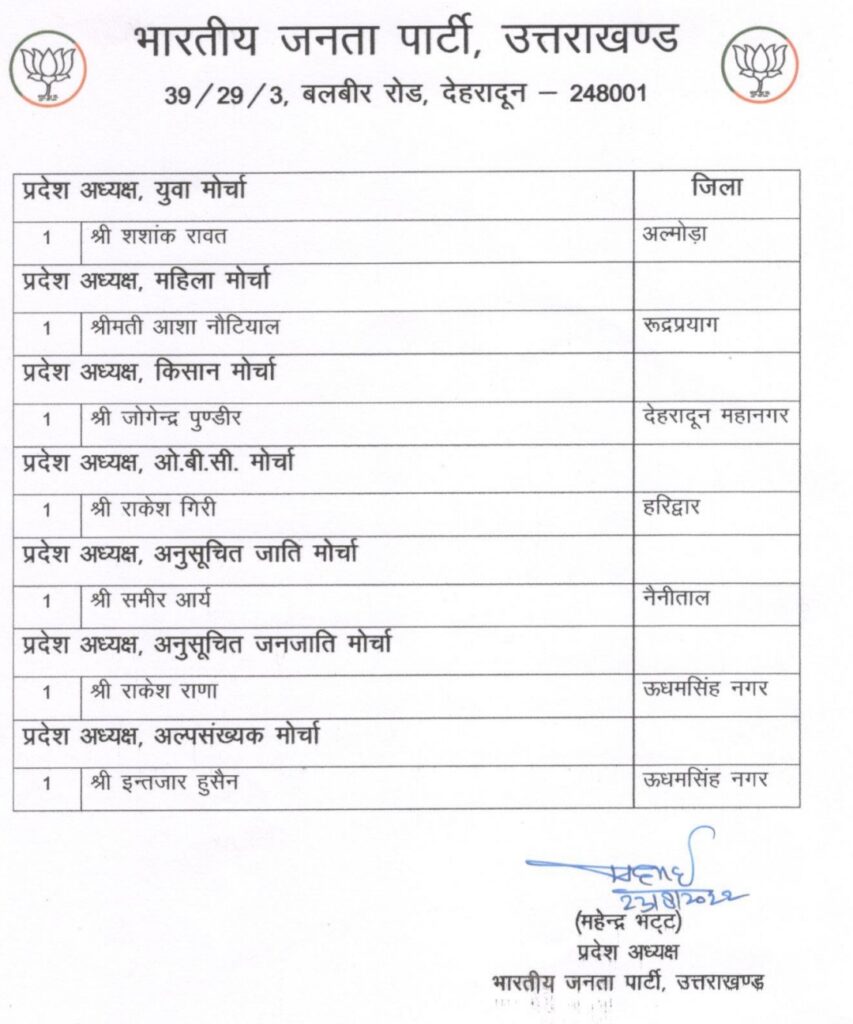 भारतीय जनता पार्टी, उत्तराखण्ड
39/29/3, बलबीर रोड, देहरादून – 248001
प्रदेश अध्यक्ष, युवा मोर्चा जिला
1 श्री शशांक रावत अल्मोड़ा
प्रदेश अध्यक्ष, महिला मोर्चा
1 श्रीमती आशा नौटियाल रूद्रप्रयाग
प्रदेश अध्यक्ष, किसान मोर्चा
1 श्री जोगेन्द्र पुण्डीर देहरादून महानगर
प्रदेश अध्यक्ष, ओ.बी.सी. मोर्चा
1 श्री राकेश गिरी हरिद्वार
प्रदेश अध्यक्ष, अनुसूचित जाति मोर्चा
1 श्री समीर आर्य नैनीताल
प्रदेश अध्यक्ष, अनुसूचित जनजाति मोर्चा
1 श्री राकेश राणा ऊधमसिंह नगर
प्रदेश अध्यक्ष, अल्पसंख्यक मोर्चा
1 श्री इन्तजार हुसैन ऊधमसिंह नगर
23/8/2022
(महेन्द्र भट्ट)
प्रदेश अध्यक्ष
भारतीय जनता पार्टी, उत्तराखण्ड